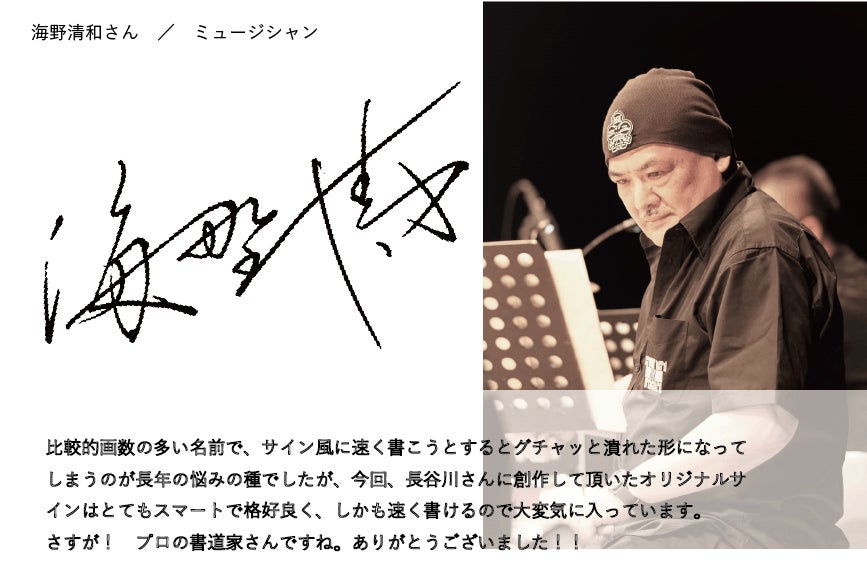 海野清和さん　／　ミュージシャン
海野清和
比較的画数の多い名前で、サイン風に速く書こうとするとグチャッと潰れた形になって
しまうのが長年の悩みの種でしたが、今回、長谷川さんに創作して頂いたオリジナルサ
インはとてもスマートで格好良く、しかも速く書けるので大変気に入っています。
さすが！　プロの書道家さんですね。ありがとうございました！！